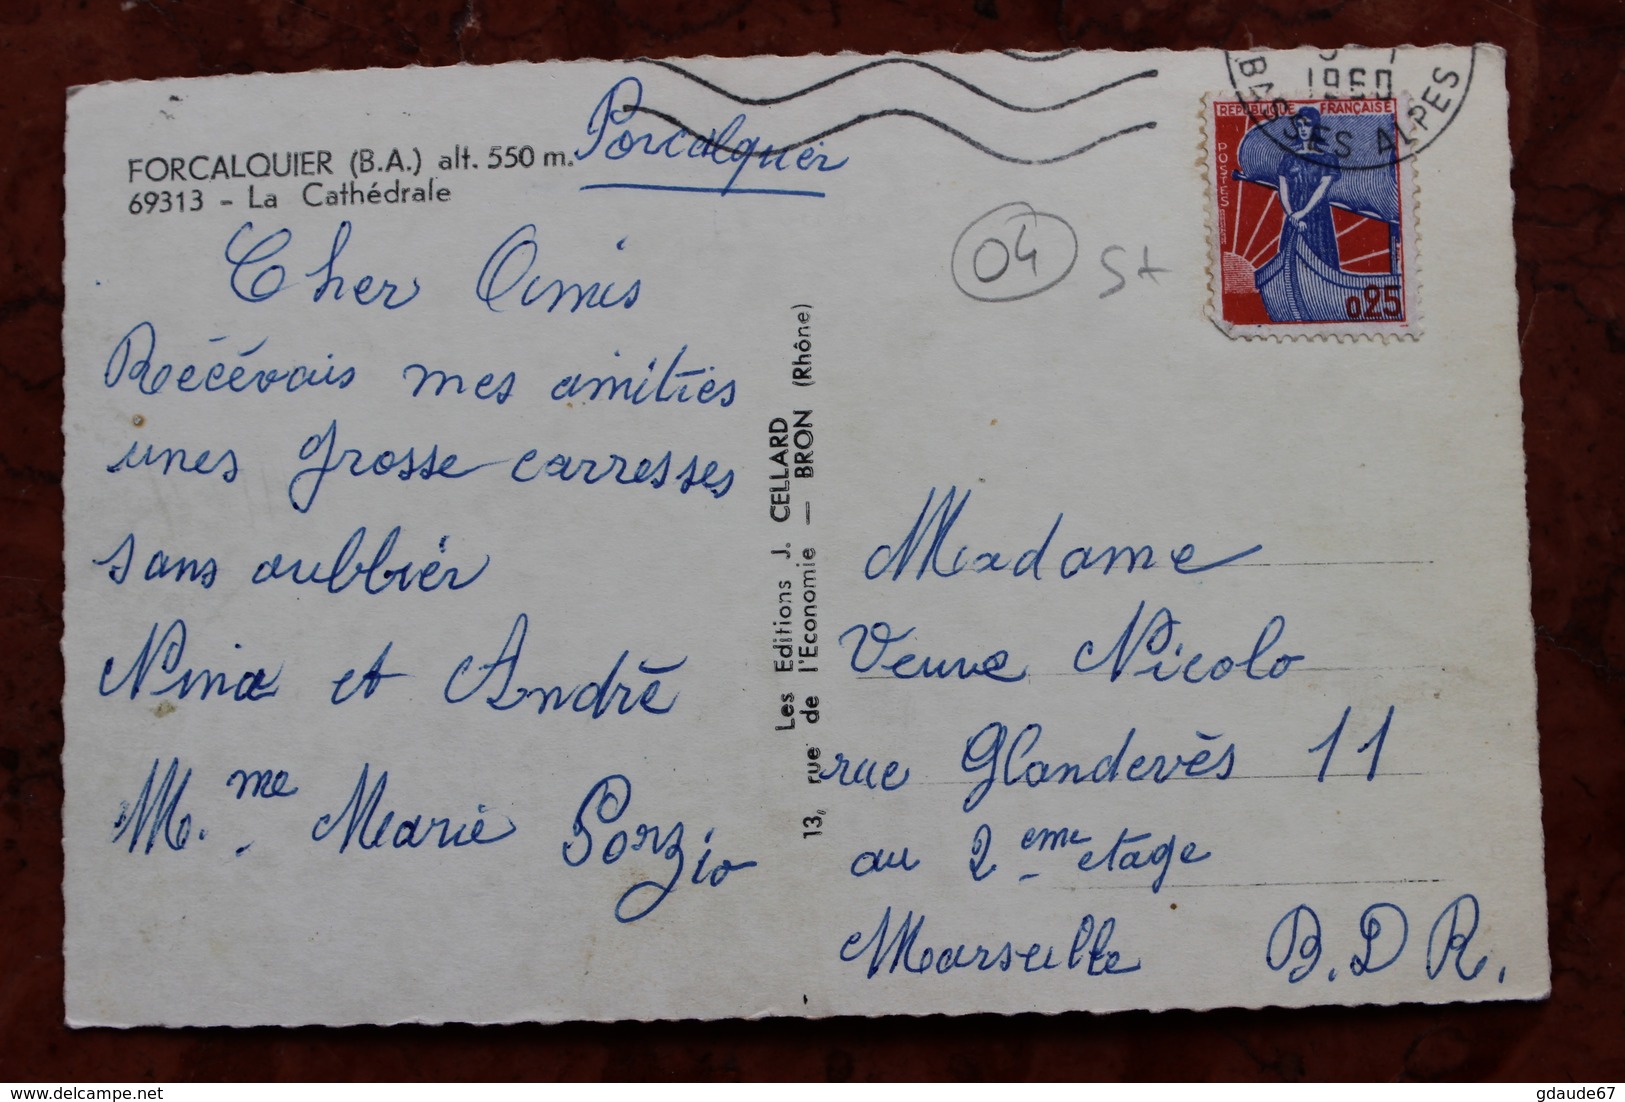 FORCALQUIER (B.A.) alt. 550 m.
69313 - La Cathédrale
Porcalquier
Cher Amis
Récévais mes amitiés
unes grosse carresses
sans oubbiér
Nina et Andrè
M.me Marie Porzio
Les Editions J. CELLARD
13, rue de l'Economie — BRON (Rhône)
04 St
1960
BASSES ALPES
REPUBLIQUE FRANÇAISE
POSTES
0,25
Madame
Veuve Nicolo
rue Glandevès 11
au 2 eme etage
Marseille B.D R.
delcampe.net
gdaude67